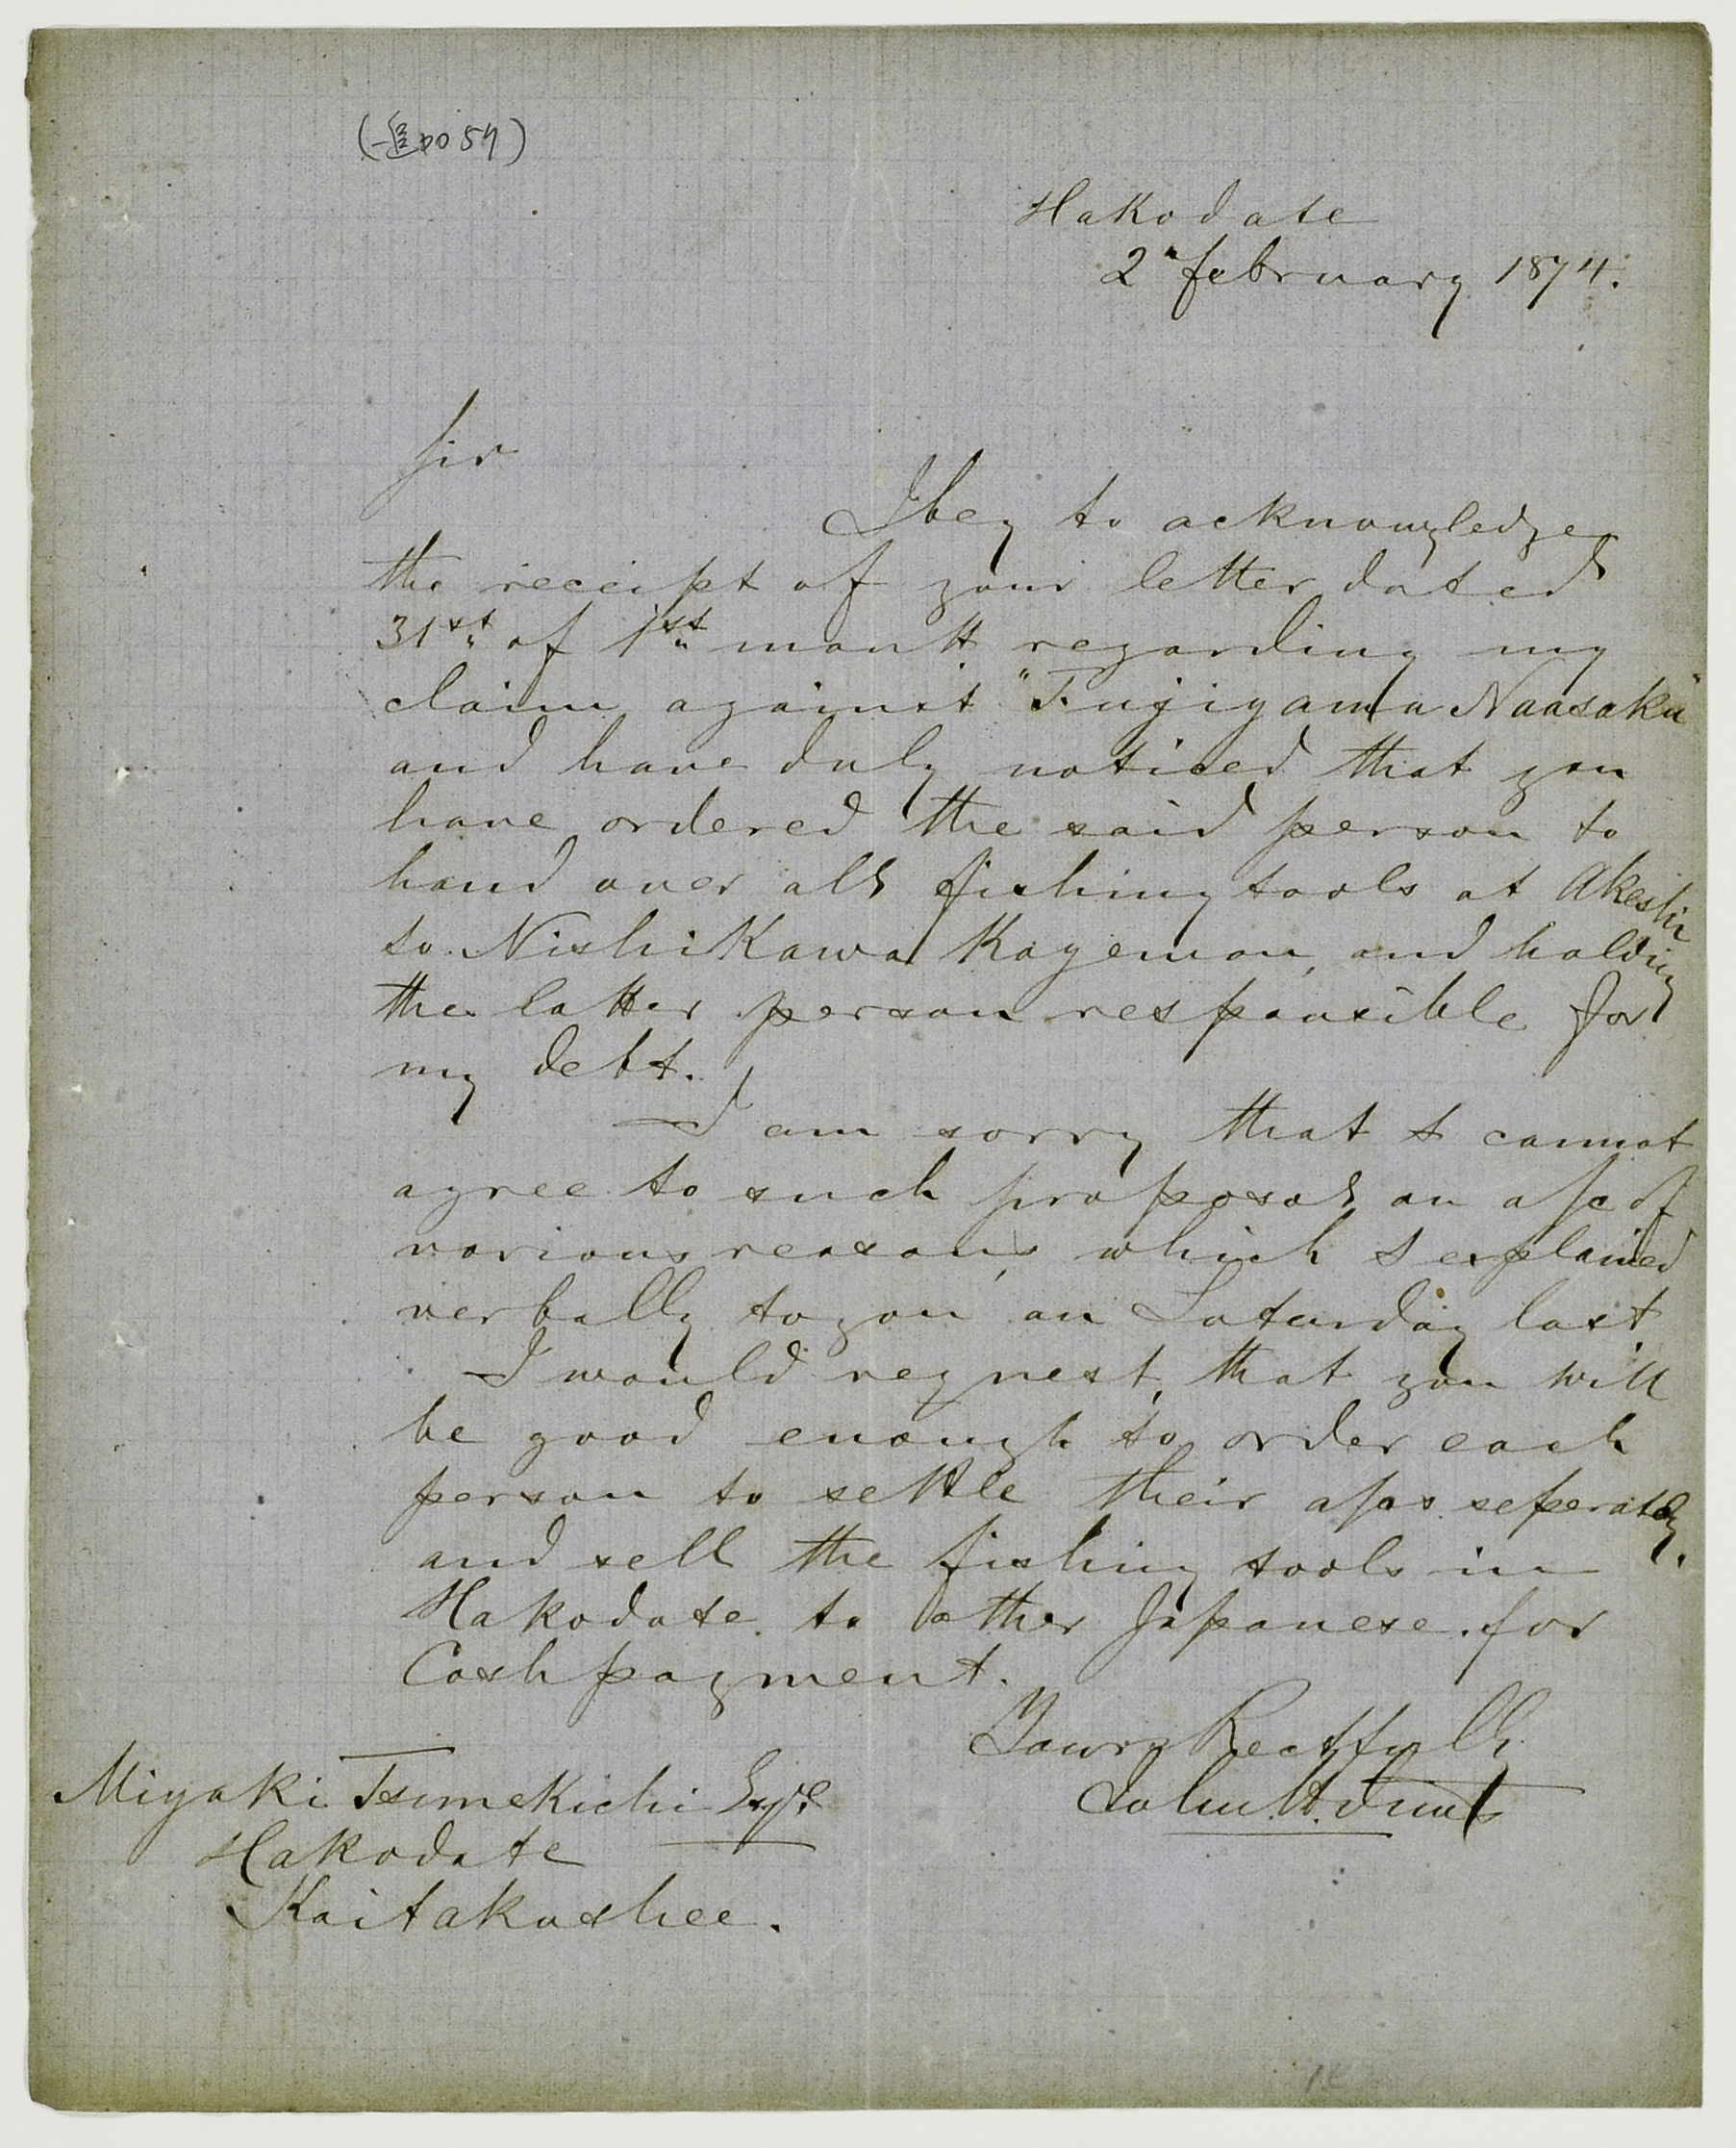 (追加 57)
Hakodate
2" february 1874.
Sir
I beg to acknowgledge
the receipt of your letter dated
31st of 1st month regarding my
claim against "Fujiyama Naasaku"
and have duly noticed that you
have ordered the said person to
hand over all fishing tools at Akeshi
to Nishikawa Kayemon, and holding
the latter person responsible for
my debt.
I am sorry that I cannot
agree to such proposal on a/c of
various reasons, which I explained
verbally to you on Saturday last
I would request, that you will
be good enough to order each
person to settle their a/cs seperately,
and sell the fishing tools in
Hakodate to other Japanese for
Cash payment.
Yours Rectfully
John H. Duus
Miyaki Tsunekichi Esqre
Hakodate
Kaitakushee.